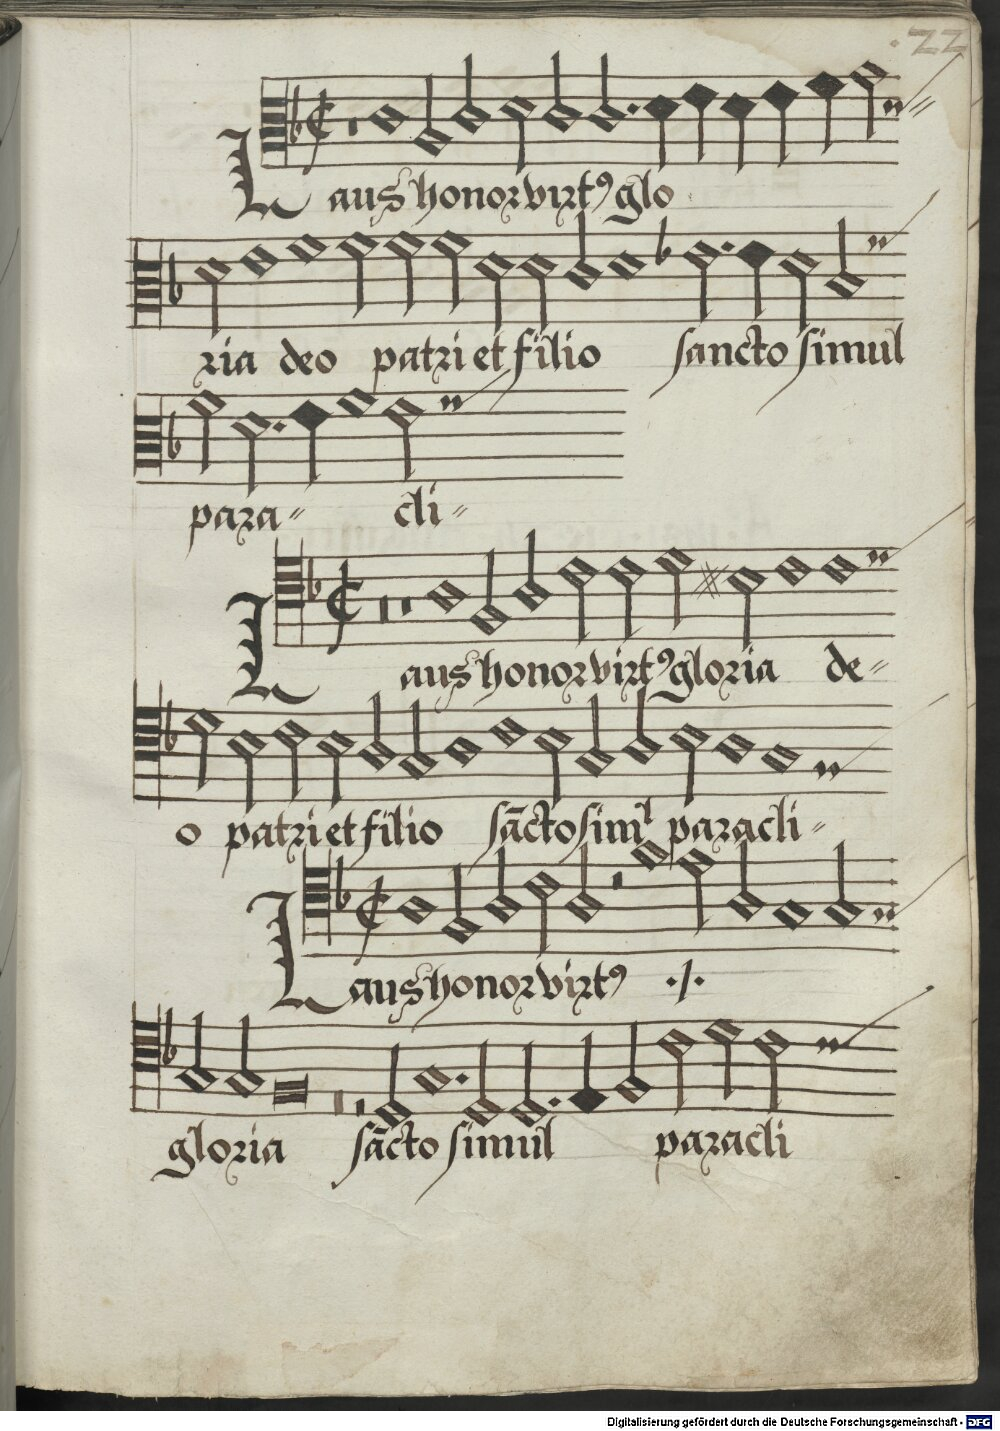 .22
Laus honor virtꝰ glo
ria deo patri et filio sancto simul
para= cli=
Laus honor virtꝰ gloria de=
o patri et filio sācto simul paracli=
Laus honor virtꝰ ./.
gloria sācto simul paracli
Digitalisierung gefördert durch die Deutsche Forschungsgemeinschaft - DFG